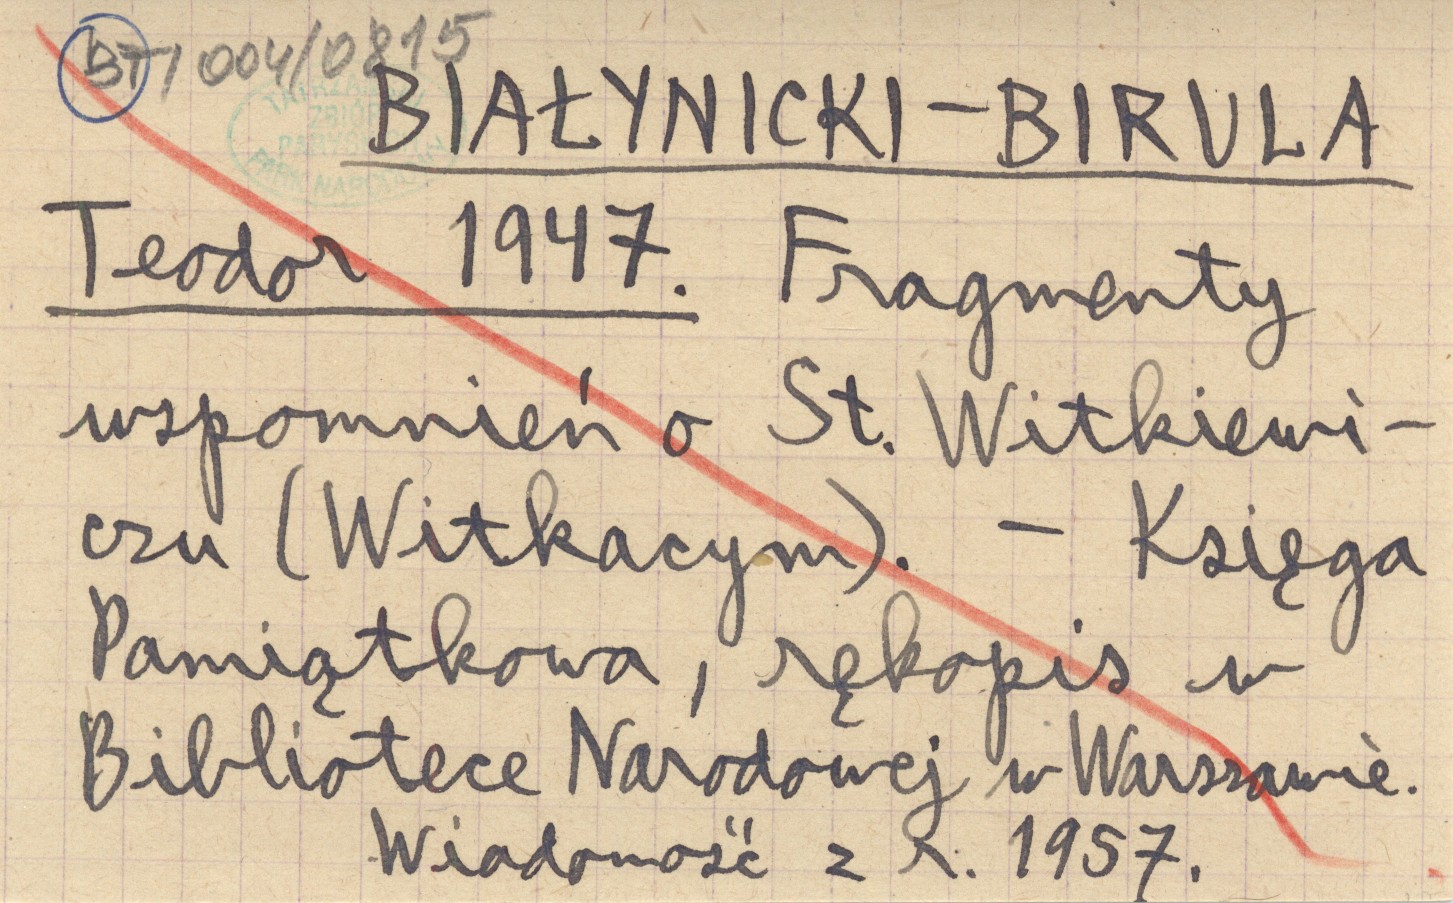 BT/004/0815
TATRZAŃSKI
ZBIÓR
PARYSKICH
PARK NARODOWY
BIAŁYNICKI-BIRULA
Teodor 1947. Fragmenty
wspomnień o St. Witkiewi-
czu (Witkacym). - Księga
Pamiątkowa, rękopis w
Bibliotece Narodowej w Warszawie.
Wiadomość z r. 1957.